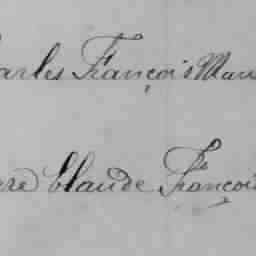 arles François Mari
re Claude François